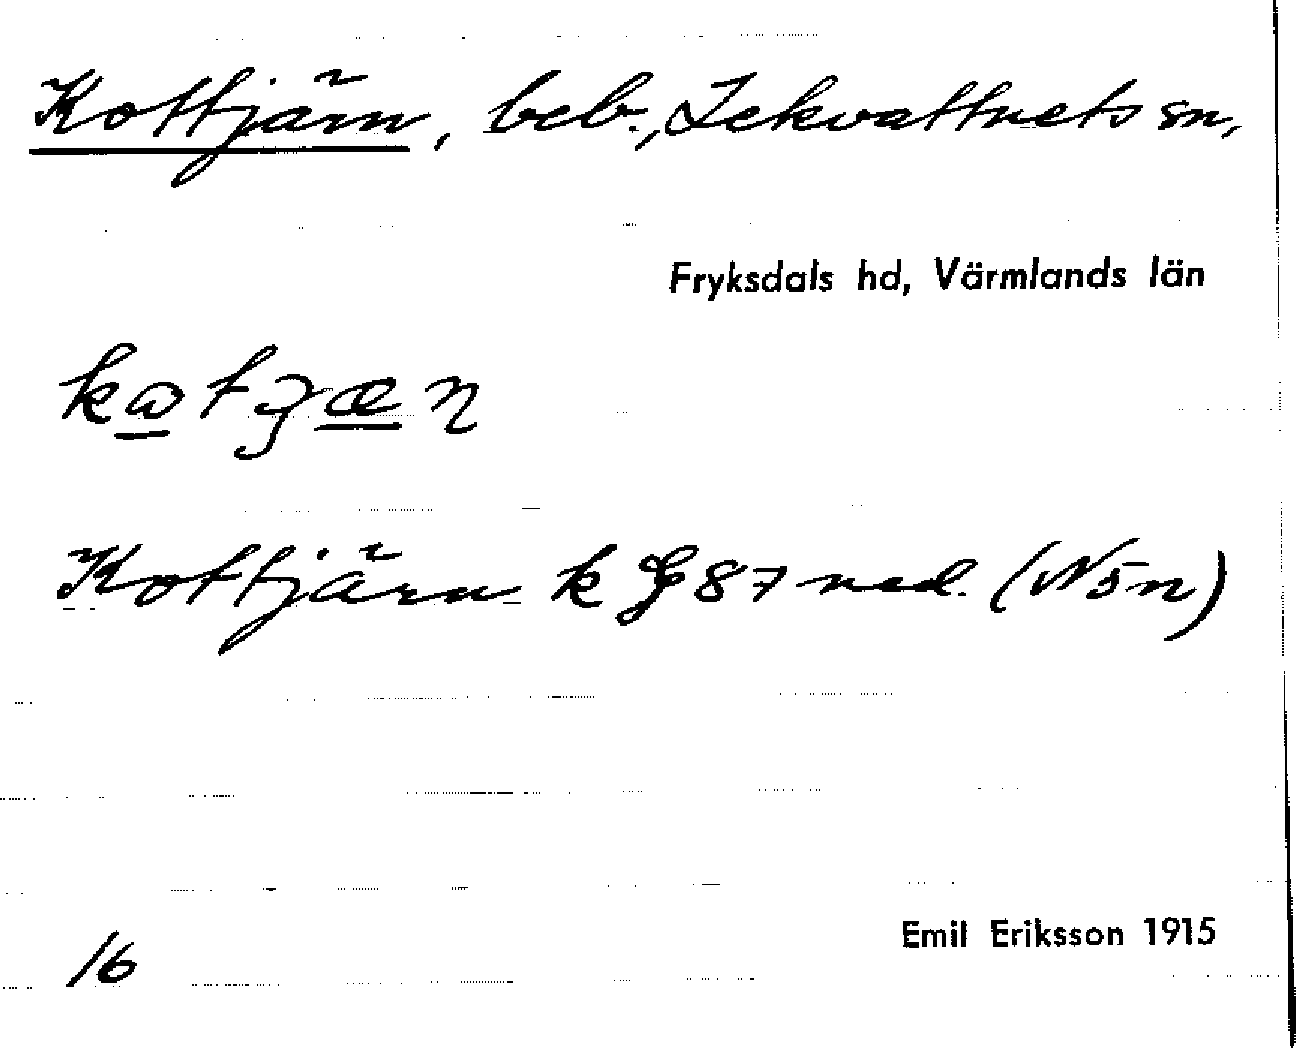 Kottjärn, beb., Lekvattnets sn,
Fryksdals hd, Värmlands län
Kottjärn k 87 ned. (N5n)
Emil Eriksson 1915
16